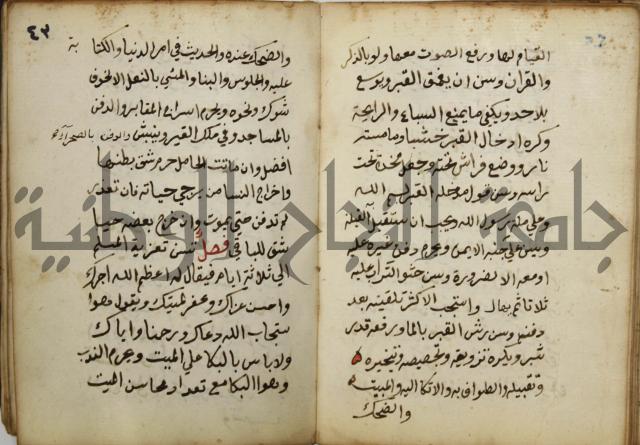 القيام لها ورفع الصوت معها ولو بالذكر
والقران وسن ان يعمق القبر ويوسع
بلا حد ويكفي ما يمنع السباع والرايحة
وكره ادخال القبر خشبا وما مسته
نار ووضع فراش تحته وجعل مخدة تحت
راسه وسن قول مدخله القبر بسم الله
وعلى ملة رسول الله ويجب ان يستقبل القبلة
ويسن على جنبه الايمن ويحرم دفن غيره عليه
او معه الا لضرورة وسن حثو التراب عليه
ثلاثا ثم يهال واستحب الاكثر تلقينه بعد
دفنه وسن رش القبر بالما ورفعه قدر
شبر ويكره تزويقه وتجصيصه وتبخيره
وتقبيله والطواف به والاتكا اليه والمبيت
والضحك
٤٢
والضحك عنده والحديث في امر الدنيا والكتابة
عليه والجلوس والبنا والمشي بالنعل الا لخوف
شوك ونحوه ويحرم اسراج المقابر والدفن
بالمساجد وفي ملك الغير وينبش والدفن بالصحرا
افضل وان ماتت الحامل حرم شق بطنها
واخراج النسا من يرجى حياته فان تعذر
لم تدفن حتى يموت وان خرج بعضه حيا
شق للباقي فصل تسن تعزية المسلم
الى ثلاثة ايام فيقال له اعظم الله اجرك
واحسن عزاك وغفر لميتك ويقول هو ا
ستجاب الله دعاك ورحمنا واياك
ولا باس بالبكا على الميت ويحرم الندب
وهو البكا مع تعداد محاسن الميت
جامعة النجاح الوطنية